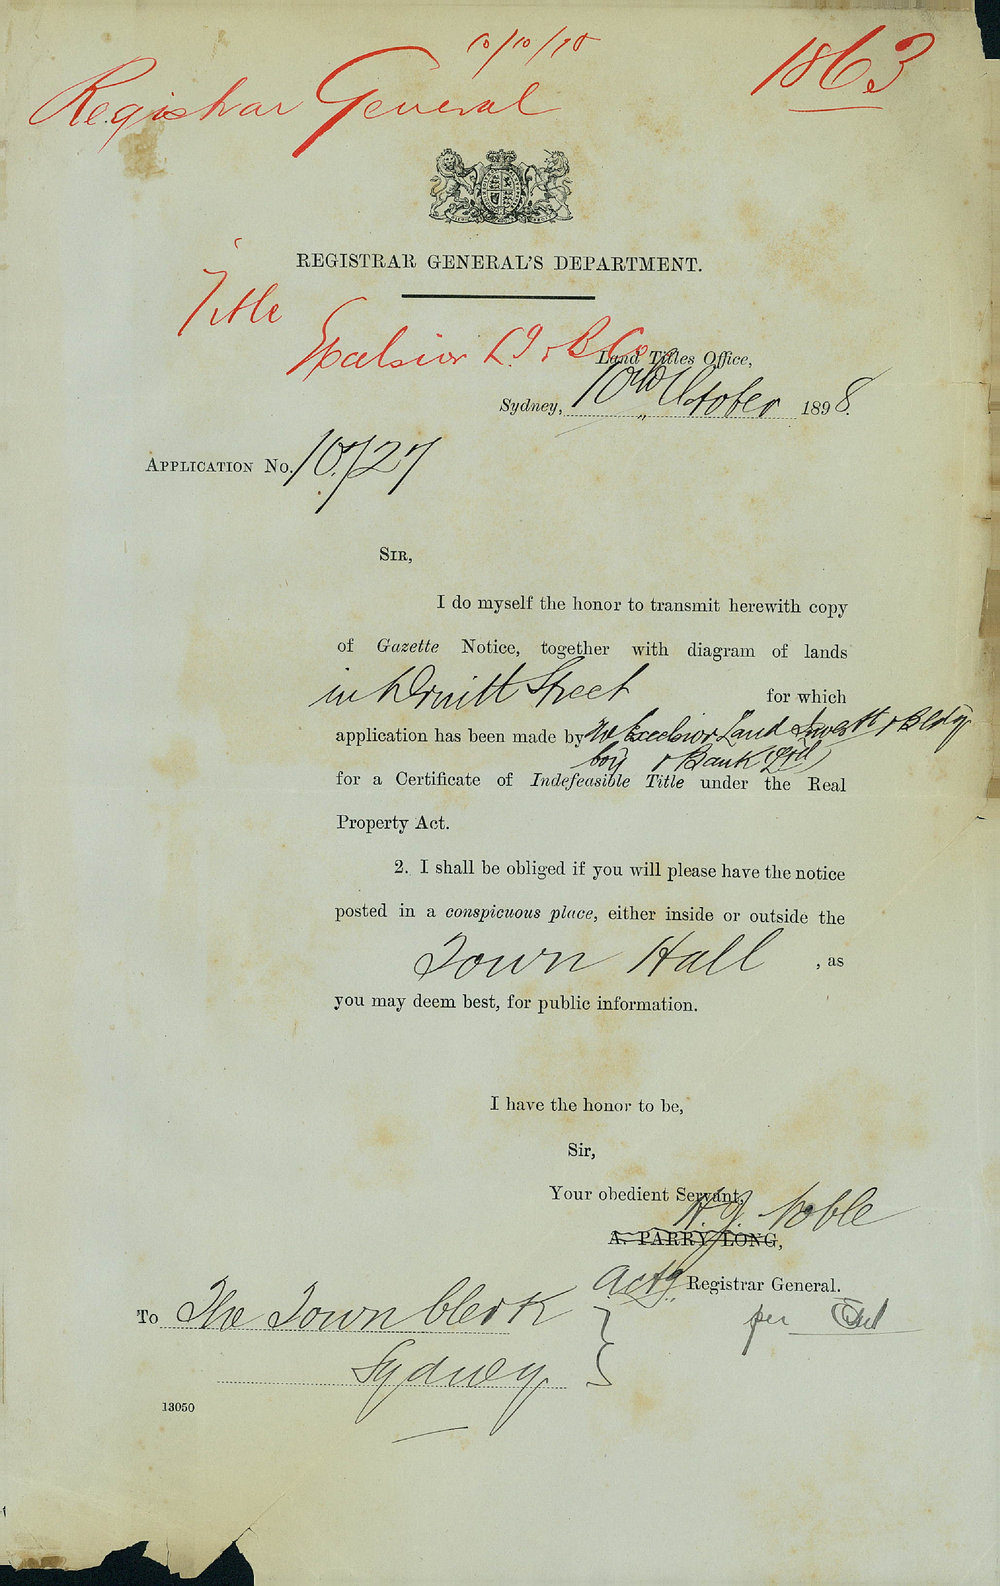 10/10/98
Registrar General
1863
REGISTRAR GENERAL'S DEPARTMENT.
Title
Excelsior L. I & B. Co
Land Titles Office,
Sydney, 10th October 1898.
APPLICATION No. 10,727
SIR,
I do myself the honor to transmit herewith copy
of Gazette Notice, together with diagram of lands
in Druitt Street for which
application has been made by The Excelsior Land Investt & Bldg
Coy & Bank Ltd
for a Certificate of Indefeasible Title under the Real
Property Act.
2. I shall be obliged if you will please have the notice
posted in a conspicuous place, either inside or outside the
Town Hall , as
you may deem best, for public information.
I have the honor to be,
Sir,
Your obedient Servant,
Noble
A. PARRY LONG,
Actg Registrar General.
per
To The Town Clerk
Sydney
13050